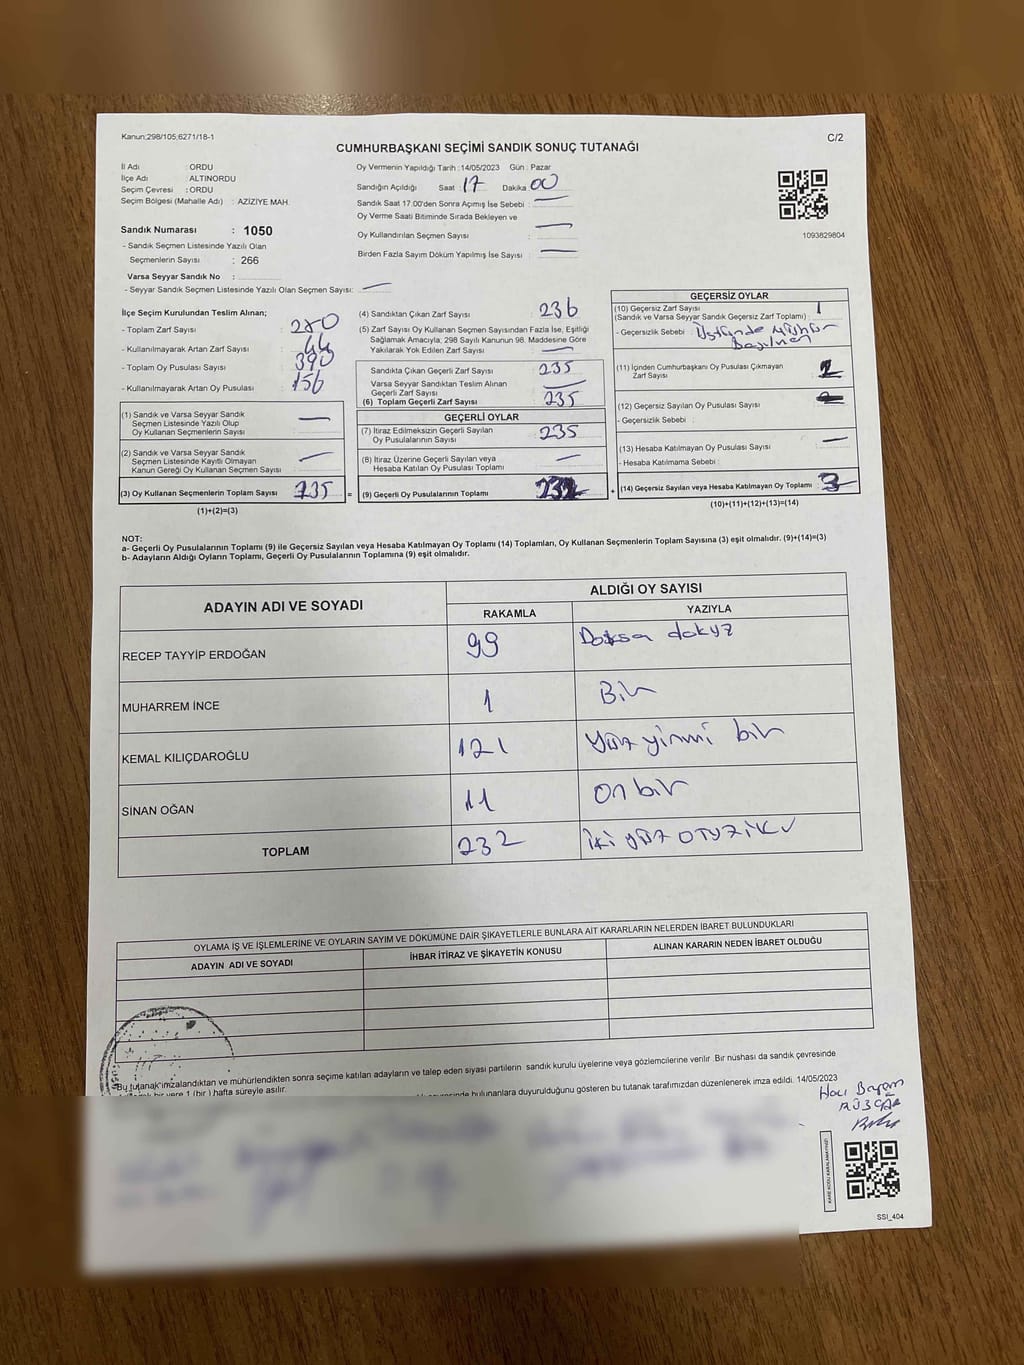 Kanun;298/105,6271/18-1
C/2
CUMHURBAŞKANI SEÇİMİ SANDIK SONUÇ TUTANAĞI
İl Adı : ORDU
İlçe Adı : ALTINORDU
Seçim Çevresi : ORDU
Seçim Bölgesi (Mahalle Adı) : AZİZİYE MAH.
Sandık Numarası : 1050
- Sandık Seçmen Listesinde Yazılı Olan
Seçmenlerin Sayısı : 266
Varsa Seyyar Sandık No :
- Seyyar Sandık Seçmen Listesinde Yazılı Olan Seçmen Sayısı: —
Oy Vermenin Yapıldığı Tarih : 14/05/2023 Gün : Pazar
Sandığın Açıldığı Saat : 17 Dakika : 00
Sandık Saat 17.00'den Sonra Açımış İse Sebebi : —
Oy Verme Saati Bitiminde Sırada Bekleyen ve
Oy Kullandırılan Seçmen Sayısı : —
Birden Fazla Sayım Döküm Yapılmış İse Sayısı : —
1093829804
İlçe Seçim Kurulundan Teslim Alınan;
- Toplam Zarf Sayısı : 280
- Kullanılmayarak Artan Zarf Sayısı : 44
- Toplam Oy Pusulası Sayısı : 390
- Kullanılmayarak Artan Oy Pusulası : 156
(1) Sandık ve Varsa Seyyar Sandık
Seçmen Listesinde Yazılı Olup
Oy Kullanan Seçmenlerin Sayısı —
(2) Sandık ve Varsa Seyyar Sandık
Seçmen Listesinde Kayıtlı Olmayan
Kanun Gereği Oy Kullanan Seçmen Sayısı —
(3) Oy Kullanan Seçmenlerin Toplam Sayısı 235
(1)+(2)=(3)
(4) Sandıktan Çıkan Zarf Sayısı : 236
(5) Zarf Sayısı Oy Kullanan Seçmen Sayısından Fazla İse, Eşitliği
Sağlamak Amacıyla; 298 Sayılı Kanunun 98. Maddesine Göre
Yakılarak Yok Edilen Zarf Sayısı : —
Sandıkta Çıkan Geçerli Zarf Sayısı : 235
Varsa Seyyar Sandıktan Teslim Alınan
Geçerli Zarf Sayısı : —
(6) Toplam Geçerli Zarf Sayısı : 235
GEÇERLİ OYLAR
(7) İtiraz Edilmeksizin Geçerli Sayılan
Oy Pusulalarının Sayısı : 235
(8) İtiraz Üzerine Geçerli Sayılan veya
Hesaba Katılan Oy Pusulası Toplamı : —
= (9) Geçerli Oy Pusulalarının Toplamı 232
GEÇERSİZ OYLAR
(10) Geçersiz Zarf Sayısı
(Sandık ve Varsa Seyyar Sandık Geçersiz Zarf Toplamı) : 1
- Geçersizlik Sebebi : Üstünde Mühür
Basılması
(11) İçinden Cumhurbaşkanı Oy Pusulası Çıkmayan
Zarf Sayısı : 2
(12) Geçersiz Sayılan Oy Pusulası Sayısı :
- Geçersizlik Sebebi :
(13) Hesaba Katılmayan Oy Pusulası Sayısı : —
- Hesaba Katılmama Sebebi :
+ (14) Geçersiz Sayılan veya Hesaba Katılmayan Oy Toplamı : 3
(10)+(11)+(12)+(13)=(14)
NOT:
a- Geçerli Oy Pusulalarının Toplamı (9) ile Geçersiz Sayılan veya Hesaba Katılmayan Oy Toplamı (14) Toplamları, Oy Kullanan Seçmenlerin Toplam Sayısına (3) eşit olmalıdır. (9)+(14)=(3)
b- Adayların Aldığı Oyların Toplamı, Geçerli Oy Pusulalarının Toplamına (9) eşit olmalıdır.
ADAYIN ADI VE SOYADI
ALDIĞI OY SAYISI
RAKAMLA YAZIYLA
RECEP TAYYİP ERDOĞAN 99 Doksan dokuz
MUHARREM İNCE 1 Bir
KEMAL KILIÇDAROĞLU 121 yüz yirmi bir
SİNAN OĞAN 11 On bir
TOPLAM 232 İki yüz otuz iki
OYLAMA İŞ VE İŞLEMLERİNE VE OYLARIN SAYIM VE DÖKÜMÜNE DAİR ŞİKAYETLERLE BUNLARA AİT KARARLARIN NELERDEN İBARET BULUNDUKLARI
ADAYIN ADI VE SOYADI İHBAR İTİRAZ VE ŞİKAYETİN KONUSU ALINAN KARARIN NEDEN İBARET OLDUĞU
Bu tutanak imzalandıktan ve mühürlendikten sonra seçime katılan adayların ve talep eden siyasi partilerin sandık kurulu üyelerine veya gözlemcilerine verilir. Bir nüshası da sandık çevresinde
bir yere 1 (bir) hafta süreyle asılır.
bulunanlara duyurulduğunu gösteren bu tutanak tarafımızdan düzenlenerek imza edildi. 14/05/2023
Hacı Bayram
RÜZGAR
KARE KODU KARALAMAYINIZ!
SSI_404